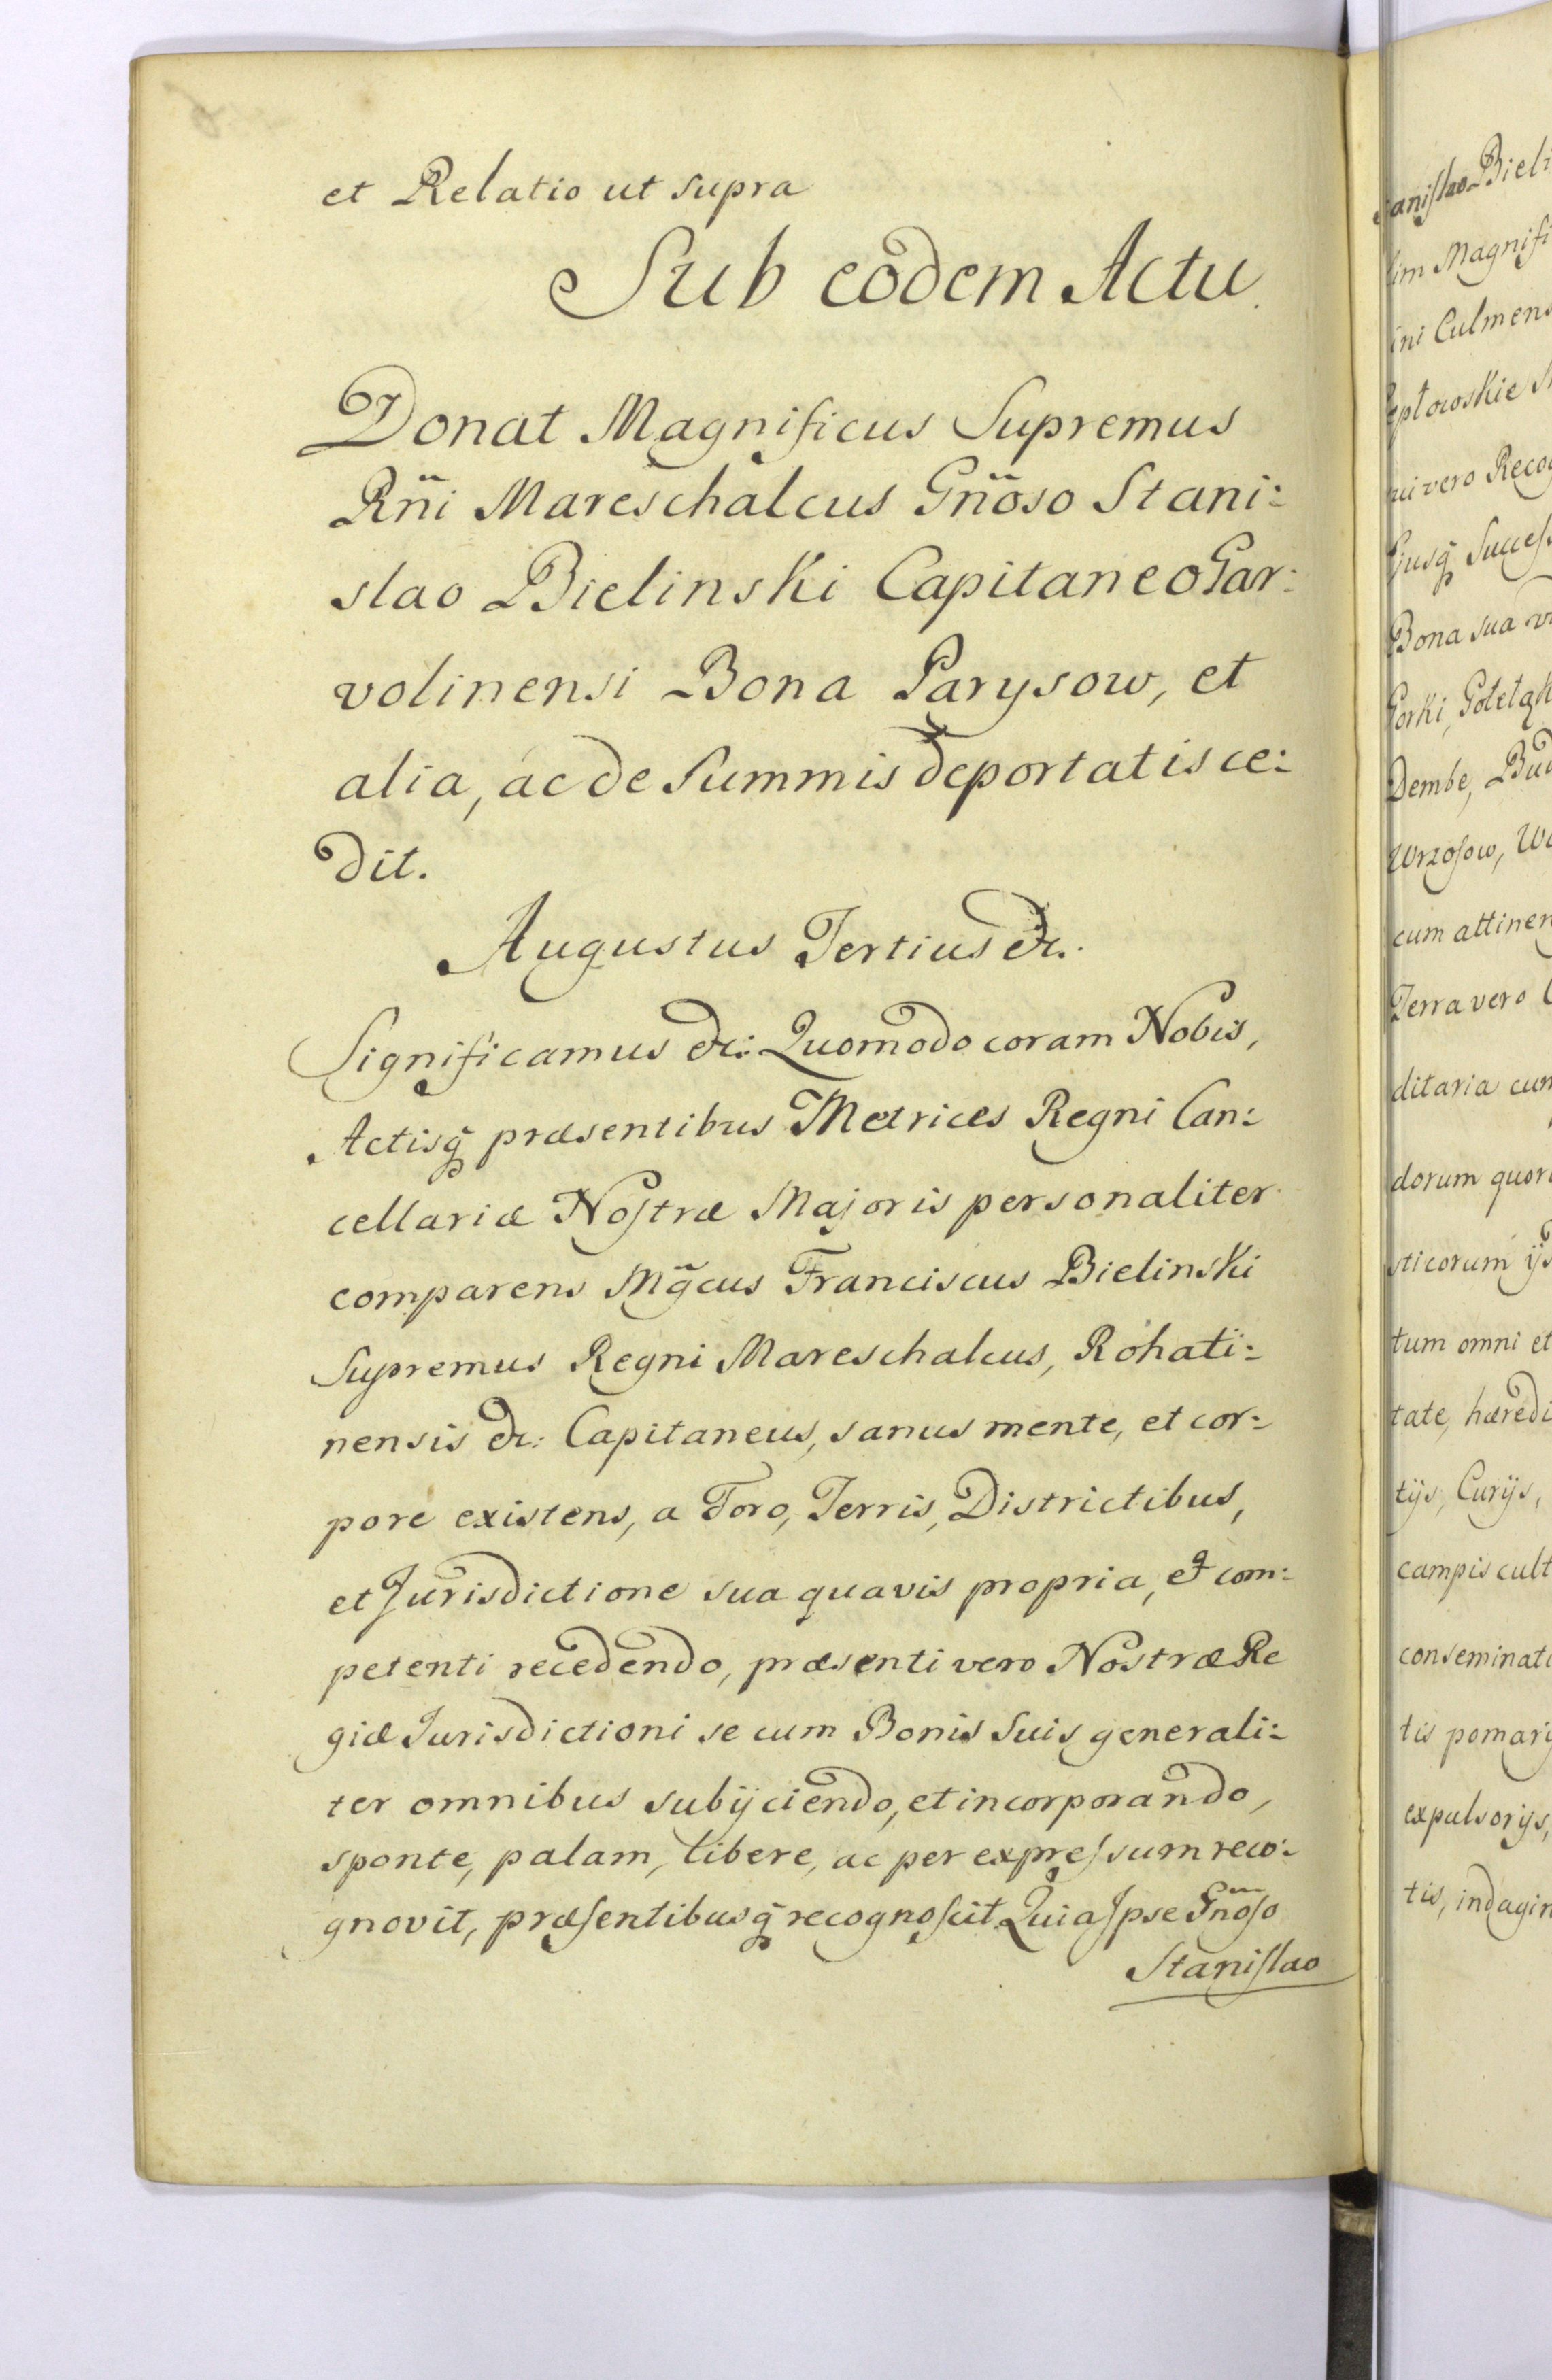 et Relatio ut supra
Sub eodem Actu.
Donat Magnificus Supremus
Rñi Mareschalcus Gñoso Stani:
slao Bielinski Capitaneo Gar:
volinensi Bona Parysow, et
alia, ac de Summis deportatis ce:
dit.
Augustus Tertius &c.
Significamus &c: Quomodo coram Nobis,
Actisq̃ præsentibus Metrices Regni Can:
cellariæ Noſtræ Majoris personaliter
comparens Mg̃cus Franciscus Bielinski
Supremus Regni Mareschalcus, Rohati:
nensis &c: Capitaneus, sanus mente, et cor:
pore existens, a Foro, Terris, Districtibus,
et Jurisdictione sua quavis propria, et com:
petenti recedendo, præsenti vero Nostræ Re
giæ Jurisdictioni se cum Bonis Suis generali:
ter omnibus subijciendo, et incorporando,
sponte, palam, libere, ac per expreſsum reco:
gnovit, præſentibusq̃ recognoſcit. Quia Jpse Gñoſo
Staniſlao
staniſlao Bieli
lim Magnifi
ini Culmens
eptowskie
ui vero Recog
Ejusq̃ Succeſs
Bona sua
Gorki, Gołełąk
Dembe, Bud
Wrzoſow, Wo
cum attinen
Terra vero
ditaria cum
dorum quor
sticorum ijs
tum omni et
tate, hæredi
tijs, Curijs,
campis cult
conseminat
tis pomarij
expulsorijs,
tis, indagin